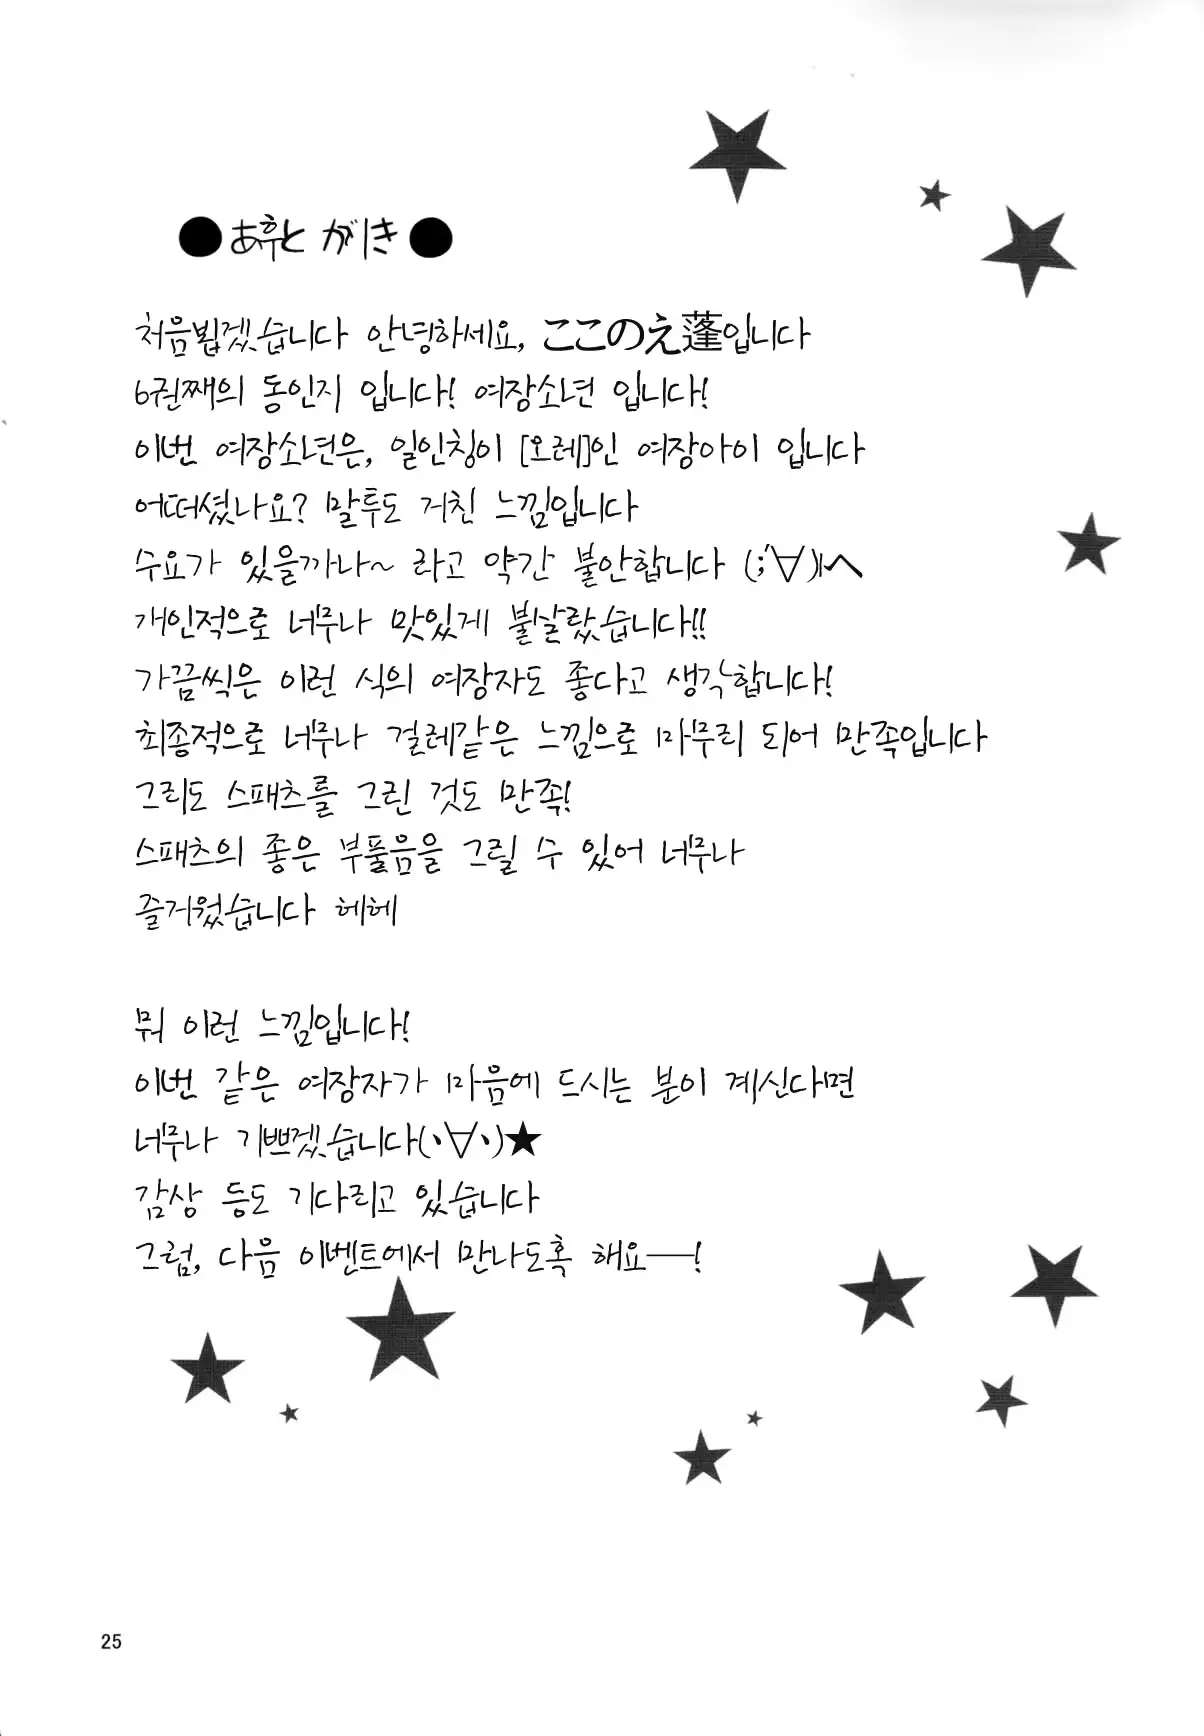 ●あ후と がき●
처음뵙겠습니다 안녕하세요, ここのえ蓬입니다
6권째의 동인지 입니다! 여장소년 입니다!
이번 여장소년은, 일인칭이 [오레]인 여장아이 입니다
어떠셨나요? 말투도 거친 느낌입니다
수요가 있을까나~ 라고 약간 불안합니다 (;´∀`)ㅏへ
개인적으로 너무나 맛있게 불살랐습니다!!
가끔씩은 이런 식의 여장자도 좋다고 생각합니다!
최종적으로 너무나 걸레같은 느낌으로 마무리 되어 만족입니다
그리도 스패츠를 그린 것도 만족!
스패츠의 좋은 부풀음을 그릴 수 있어 너무나
즐거웠습니다 헤헤
뭐 이런 느낌입니다!
이번 같은 여장자가 마음에 드시는 분이 계신다면
너무나 기쁘겠습니다(､∀､)★
감상 등도 기다리고 있습니다
그럼, 다음 이벤트에서 만나도록 해요──!
25